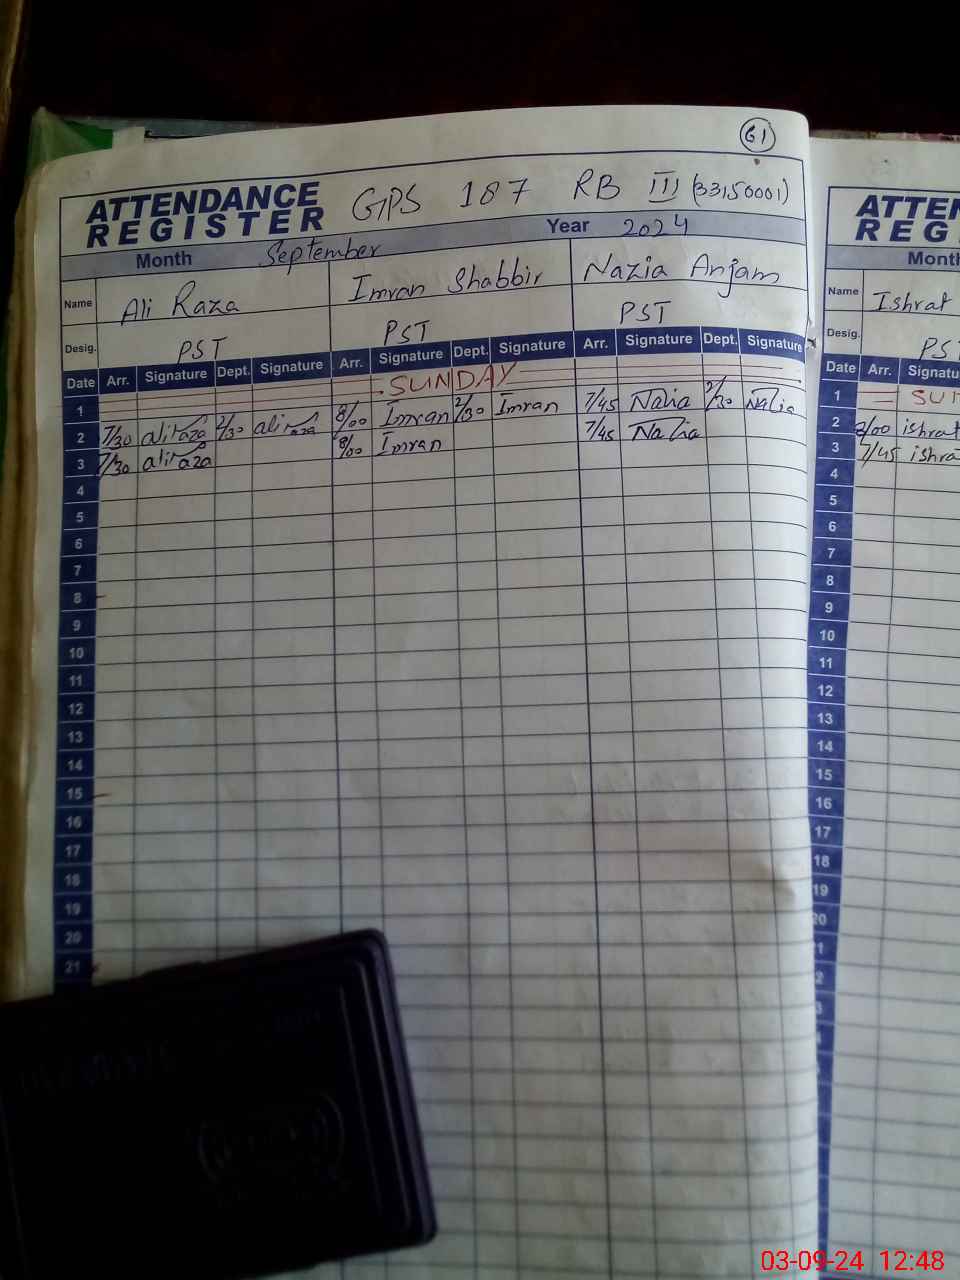 61
ATTENDANCE REGISTER GPS 187 RB III (33150001)
Month September Year 2024
Name Ali Raza Imran Shabbir Nazia Anjam
Desig. PST PST PST
Date Arr. Signature Dept. Signature Arr. Signature Dept. Signature Arr. Signature Dept. Signature
1 SUNDAY
2 7/30 aliraza 2/30 aliraza 8/00 Imran 2/30 Imran 7/45 Nazia 2/30 Nazia
3 7/30 aliraza 8/00 Imran 7/45 Nazia
4
5
6
7
8
9
10
11
12
13
14
15
16
17
18
19
20
21
Month
Name Ishrat
Desig.
Date Arr.
1
2 8/00 ishrat
3 7/45
4
5
6
7
8
9
10
11
12
13
14
15
16
17
18
19
20
03-09-24 12:48